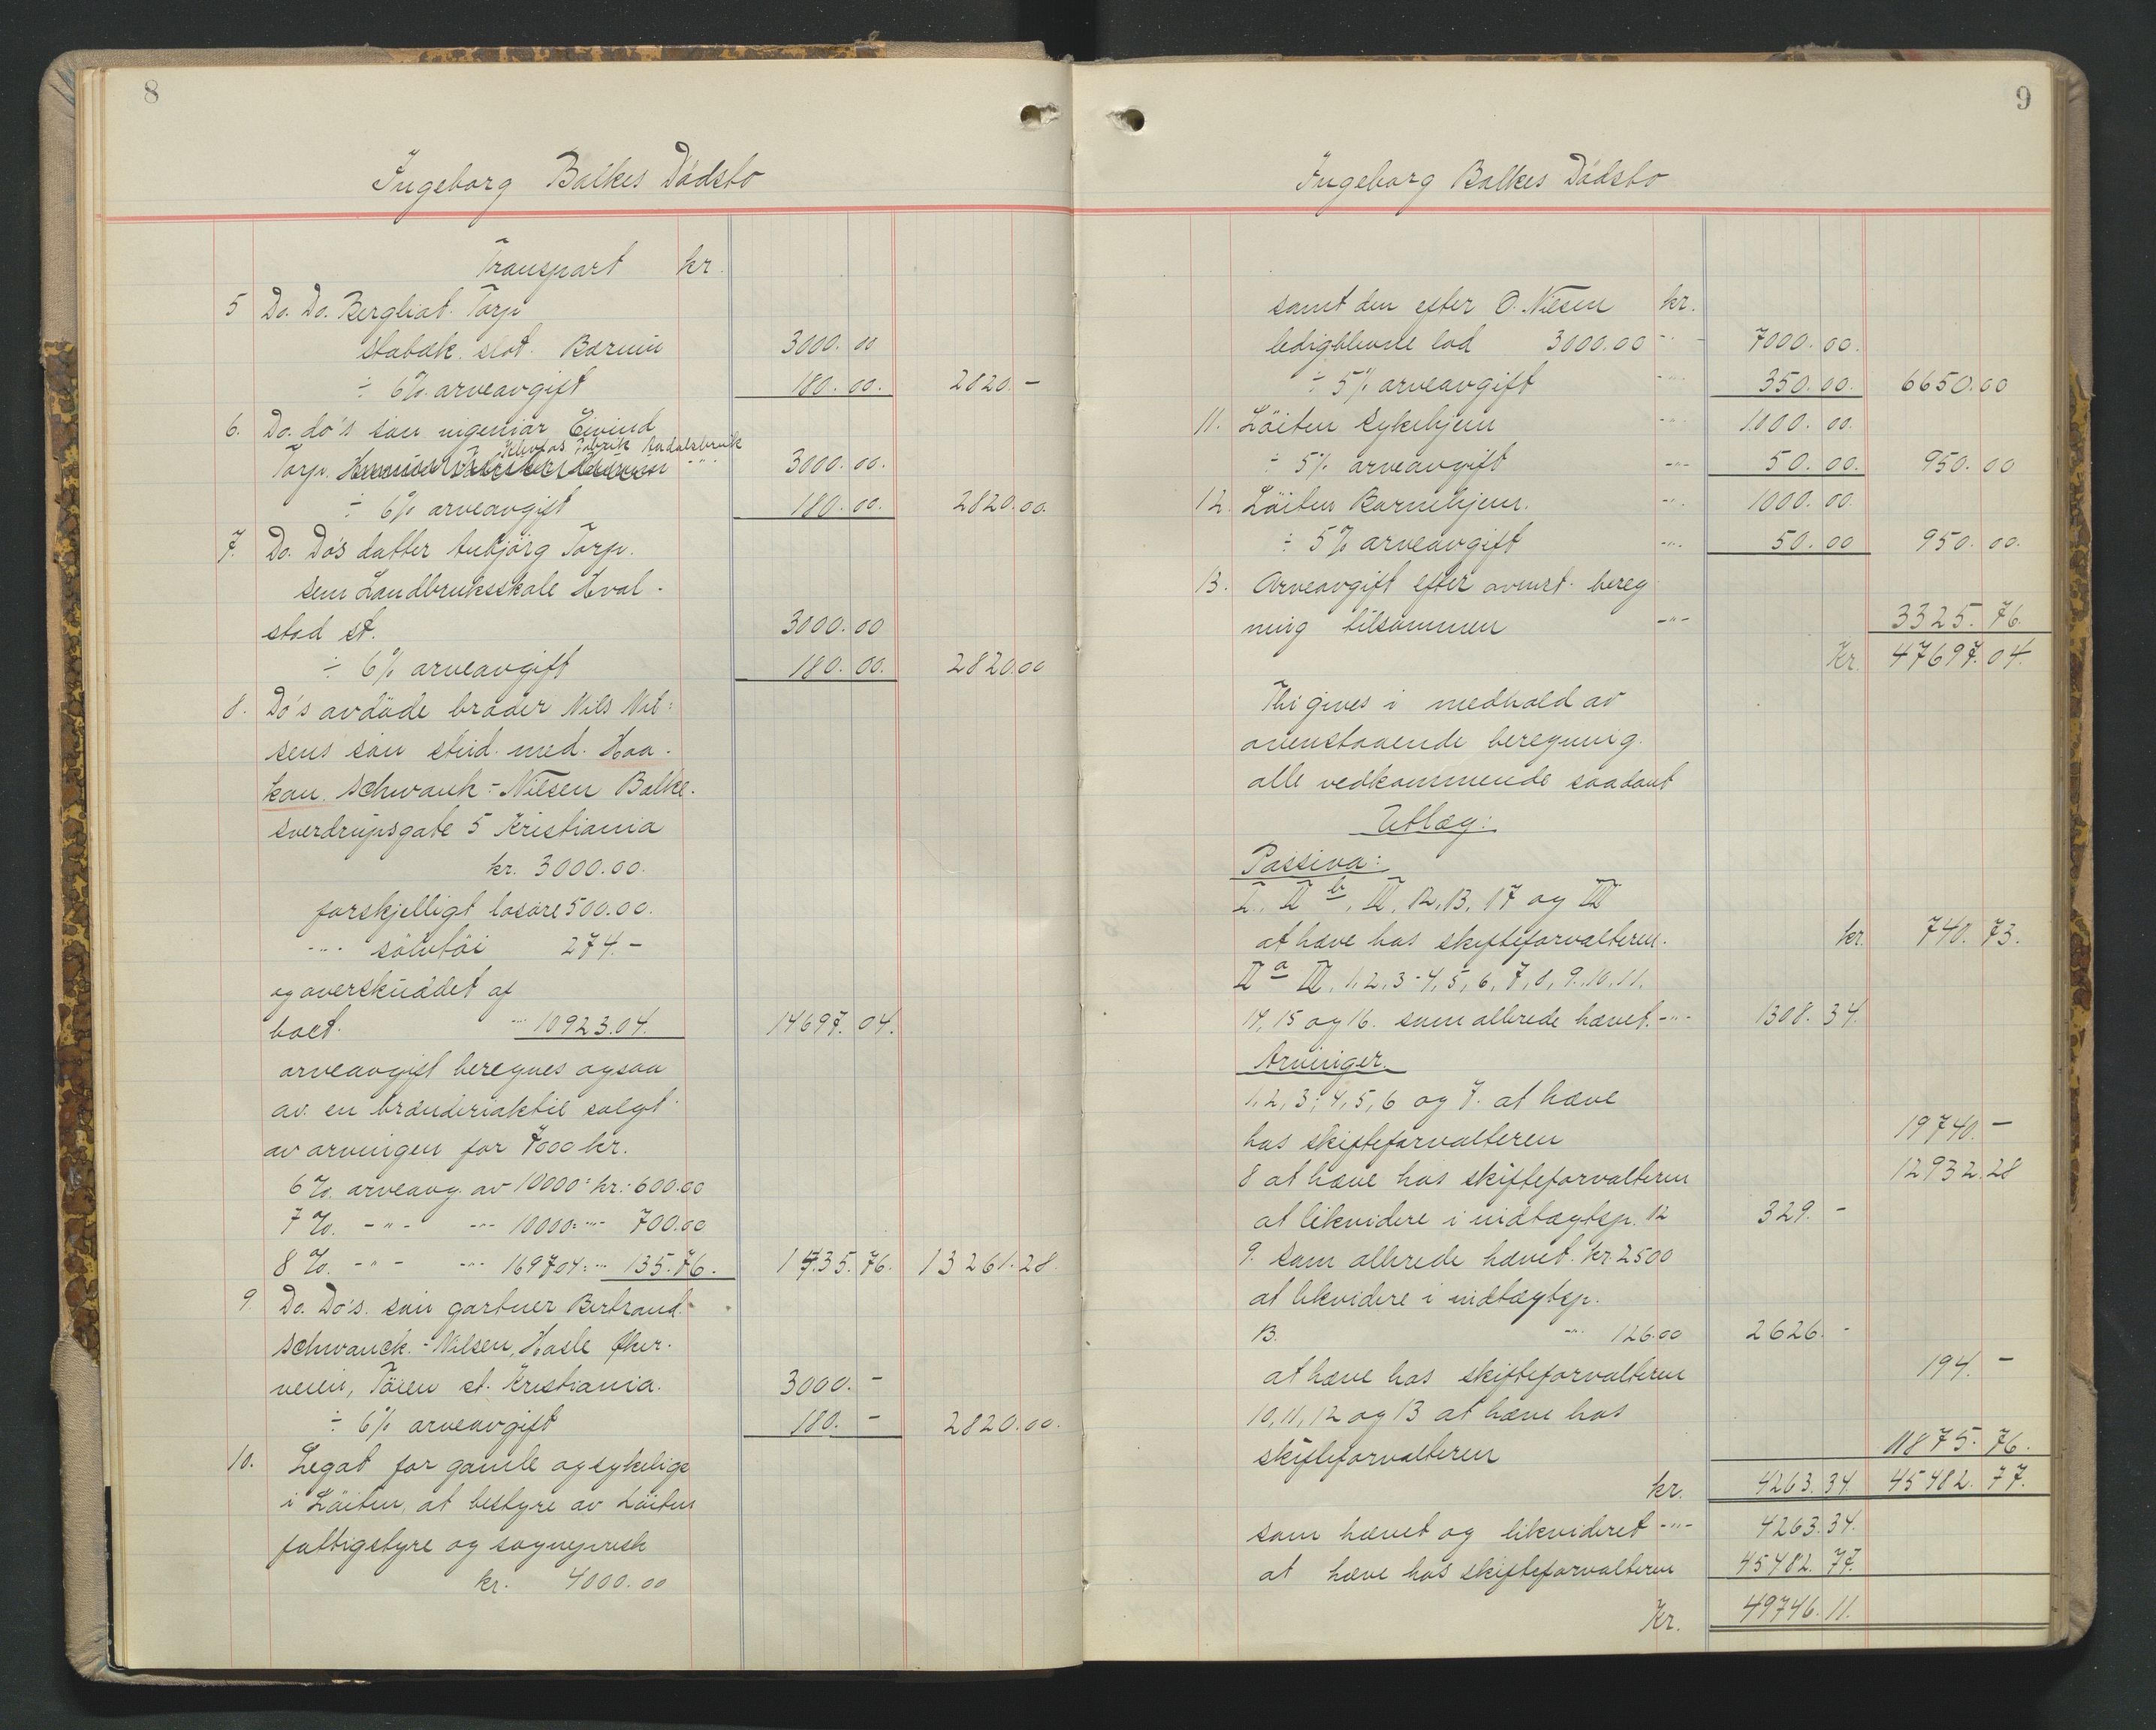 8
Ingeborg Balkes Dödsbo
Transport kr.
5 Do. Do. Bergliot Torp
Stabæk slot. Bærum 3000.00
÷ 6% arveavgift 180.00. 2820.-
6. Do. do's sön ingeniör Eivind
Klevfos Fabrik Aadalsbruk
Torp. -"- 3000.00.
÷ 6% arveavgift 180.00. 2820.00.
7. Do. Do's datter Anbjörg Torp.
Sem Landbruksskole Hval-
stad st. 3000.00
÷ 6% arveavgift 180.00. 2820.00
8. Do's avdöde broder Nils Nil-
sens sön stud. med. Haa-
kon Schwank-Nilsen Balke.
Sverdrupsgate 5 Kristiania
kr. 3000.00.
forskjelligt lösöre 500.00.
-"- sölvtöi 274.-
og overskuddet af
boet. -"- 10923.04. 14697.04.
arveavgift beregnes ogsaa
av en brænderiaktie solgt
av arvingen for 7000 kr.
6%. arveavg. av 10000: kr: 600.00
7%. -"- -"- 10000: -"- 700.00
8%. -"- -"- 1697.04: -"- 135.76. 1435.76. 13261.28.
9. Do. Do's. sön gartner Bertrand
Schwanck.-Nilsen, Hasle Öker-
veien, Töien st. Kristiania. 3000.-
÷ 6% arveavgift 180.- 2820.00.
10. Legat for gamle og sykelige
i Löiten, at bestyre av Löiten
fattigstyre og sogneprest
kr. 4000.00
9
Ingeborg Balkes Dödsbo
samt den efter O. Nilsen kr.
ledigblevne lod 3000.00 -"- 7000.00.
÷ 5% arveavgift -"- 350.00. 6650.00
11. Löiten Sykehjem -"- 1000.00.
÷ 5% arveavgift -"- 50.00. 950.00
12. Löiten Barnehjem. -"- 1000.00.
÷ 5% arveavgift -"- 50.00 950.00.
13. Arveavgift efter ovenst. bereg
ning tilsammen -"- 3325.76.
Kr. 47697.04.
Thi gives i medhold av
ovenstaaende beregning
alle vedkommende saadant
Utlæg:
Passiva:
I, II b, III, 12, 13, 17 og
at hæve hos skifteforvalteren. kr. 740.73.
II a III, 1, 2, 3-4, 5, 6, 7, 8, 9, 10, 11,
14, 15 og 16. som allerede hævet. -"- 1308.34.
Arvinger.
1, 2, 3, 4, 5, 6 og 7. at hæve
hos skifteforvalteren 19740.-
8 at hæve hos skifteforvalteren 12932.28
at likvidere i indtægtsp. 12 329.-
9. som allerede hævet. kr. 2500
at likvidere i indtægtsp.
13. -"- 126.00 2626.-
at hæve hos skifteforvalteren 194.-
10, 11, 12 og 13 at hæve hos
skifteforvalteren 11875.76.
kr. 4263.34. 45482.77.
som hævet og likvideret -"- 4263.34.
at hæve hos skifteforvalteren 45482.77.
Kr. 49746.11.